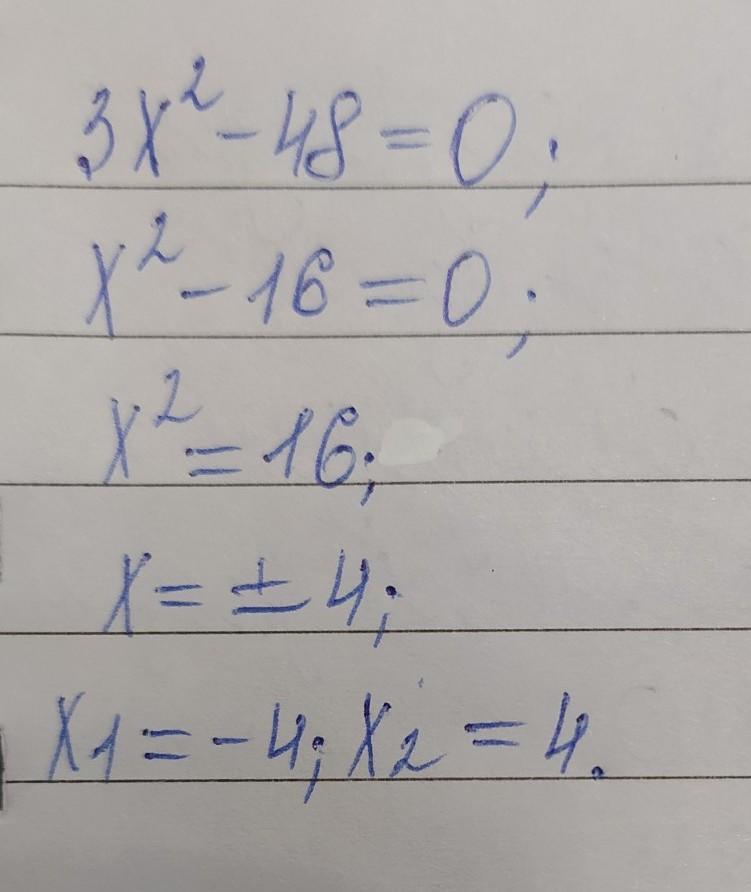 3x² - 48 = 0;
x² - 16 = 0;
x² = 16;
x = ± 4;
x1 = - 4; x2 = 4.